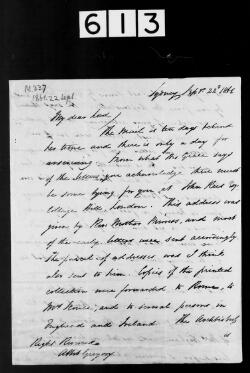 613
N.337
1862. 22 Sept
Sydney Sept. 22d 1862
My dear Lord/
The Mail is ten days behind
her time and there is only a day for
answering. From what His Grace says
of the letters you acknowledge there must
be some lying for you at John
College Hill, London. This address was
given by Rev Mother Prioress, and most
of the early letters were sent accordingly
The packet of addresses was I think
also sent to him. Copies of the printed
collection were forwarded to Rome, to
and to several persons in
England and Ireland The Archbishop
Right Reverend
Abbot Gregory